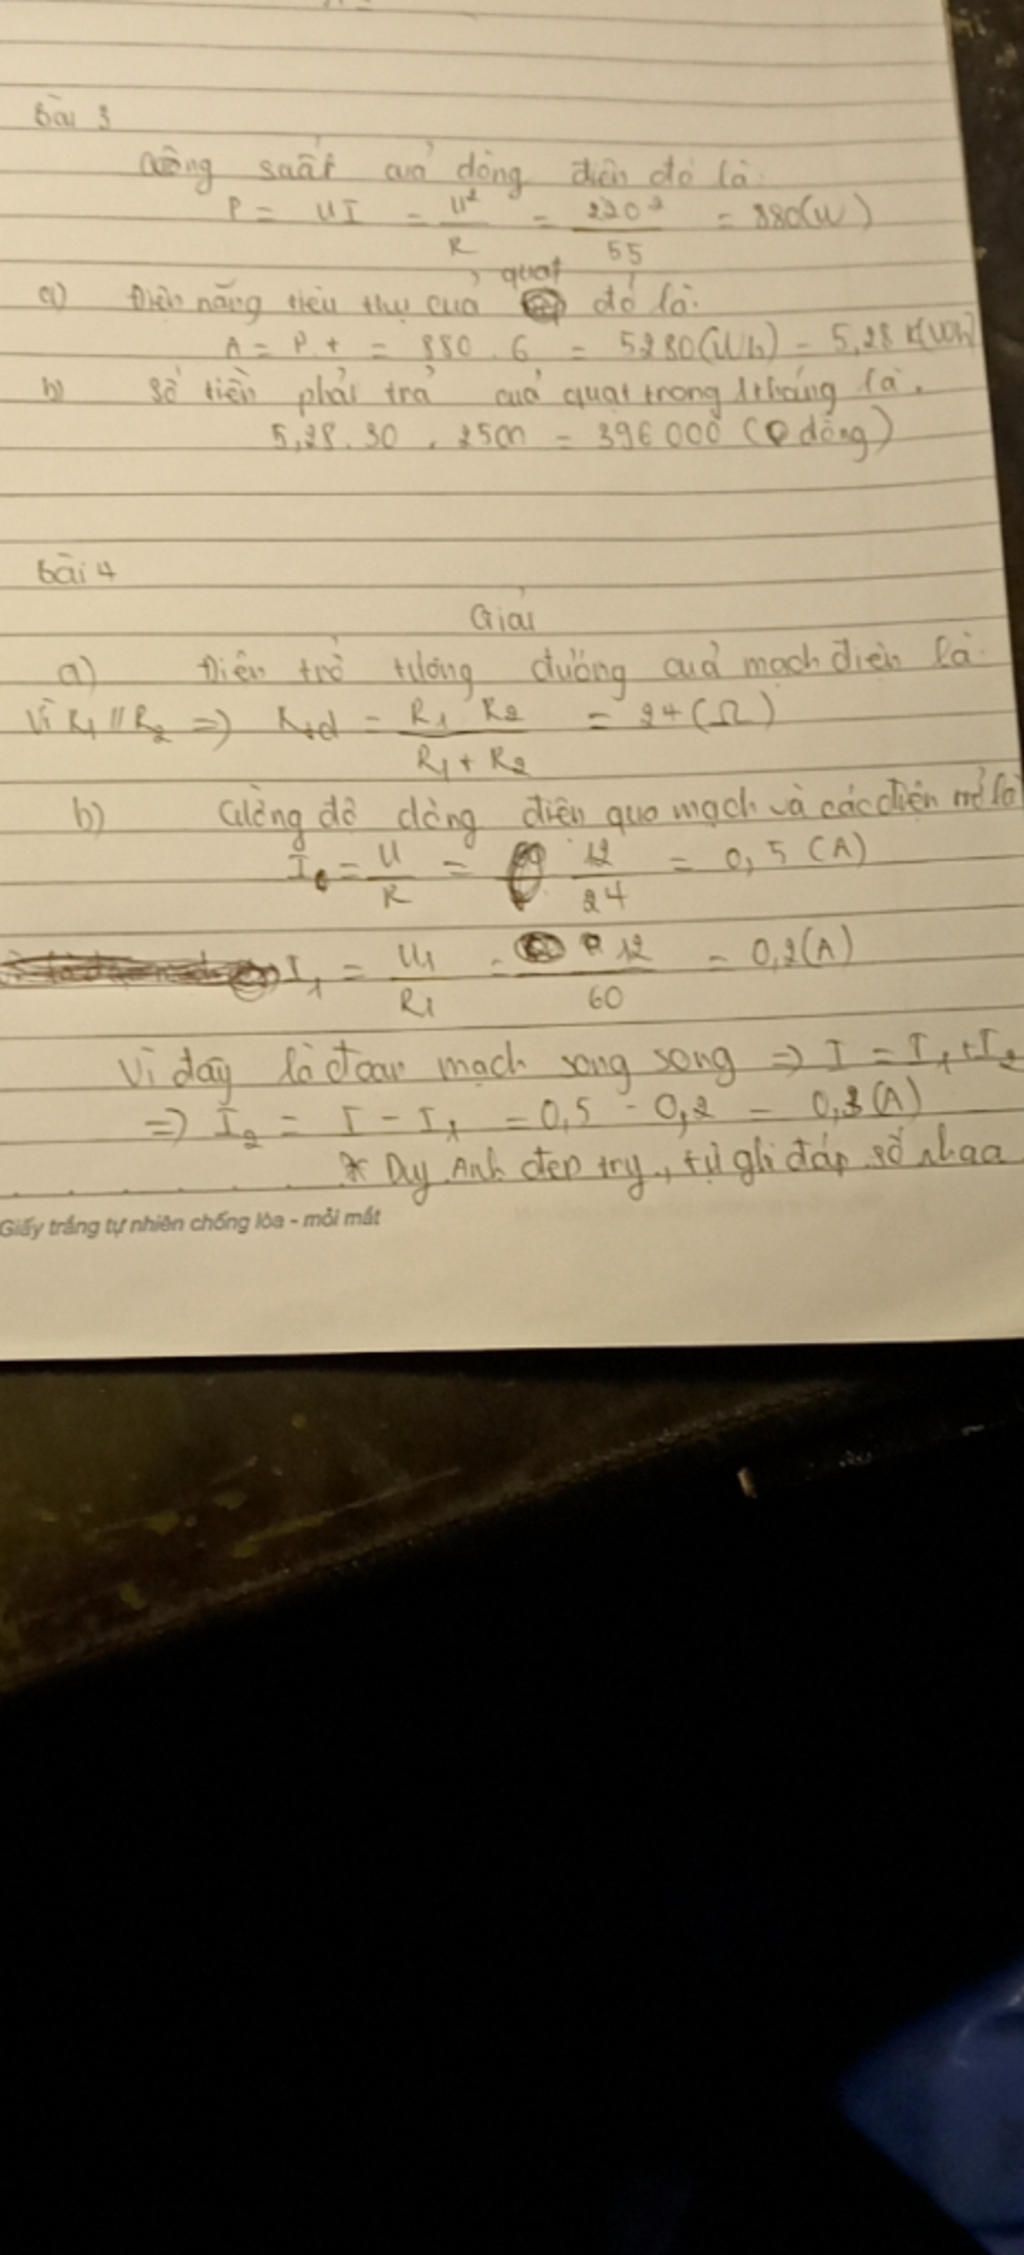 Bài 3
Công suất của dòng điện đó là:
P = UI = U²/R = 220²/55 = 880(W)
a) Điện năng tiêu thụ của quạt đó là:
A = P.t = 880 . 6 = 5280(Wh) = 5,28 k(Wh)
b) Số tiền phải trả của quạt trong 1 tháng là.
5,28 . 30 . 2500 = 396000 (đồng)
Bài 4
Giải
a) Điện trở tương đương của mạch điện là
Vì R₁ // R₂ => Rtđ = R₁ R₂ / R₁ + R₂ = 24 (Ω)
b) Cường độ dòng điện qua mạch và các điện trở là
I = U/R = 12/24 = 0,5 (A)
I₁ = U₁/R₁ = 12/60 = 0,2(A)
Vì đây là đoạn mạch song song => I = I₁ + I₂
=> I₂ = I - I₁ = 0,5 - 0,2 = 0,3(A)
* Duy Anh đẹp try, tự ghi đáp số nhaa
Giấy trắng tự nhiên chống lóa - mỏi mắt